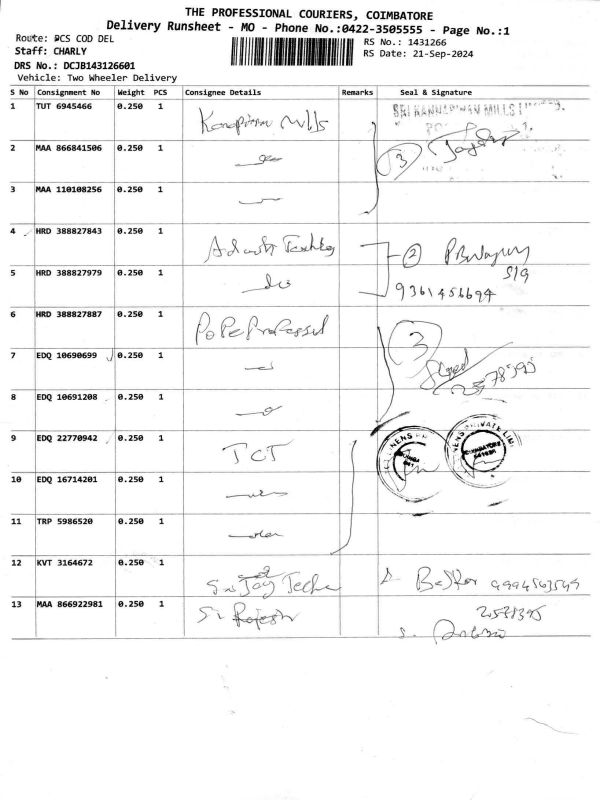 THE PROFESSIONAL COURIERS, COIMBATORE
Delivery Runsheet - MO - Phone No.:0422-3505555 - Page No.:1
Route: PCS COD DEL
RS No.: 1431266
Staff: CHARLY
RS Date: 21-Sep-2024
DRS No.: DCJB143126601
Vehicle: Two Wheeler Delivery
S No Consignment No Weight PCS Consignee Details Remarks Seal & Signature
1 TUT 6945466 0.250 1 Mills
2 MAA 866841506 0.250 1 3
3 MAA 110108256 0.250 1
4 HRD 388827843 0.250 1 2
5 HRD 388827979 0.250 1 do 9361456694
6 HRD 388827887 0.250 1 3
7 EDQ 10690699 0.250 1
8 EDQ 10691208 0.250 1
9 EDQ 22770942 0.250 1 TCT
10 EDQ 16714201 0.250 1
11 TRP 5986520 0.250 1
12 KVT 3164672 0.250 1 Sri Jay
13 MAA 866922981 0.250 1 Sri Rajesh